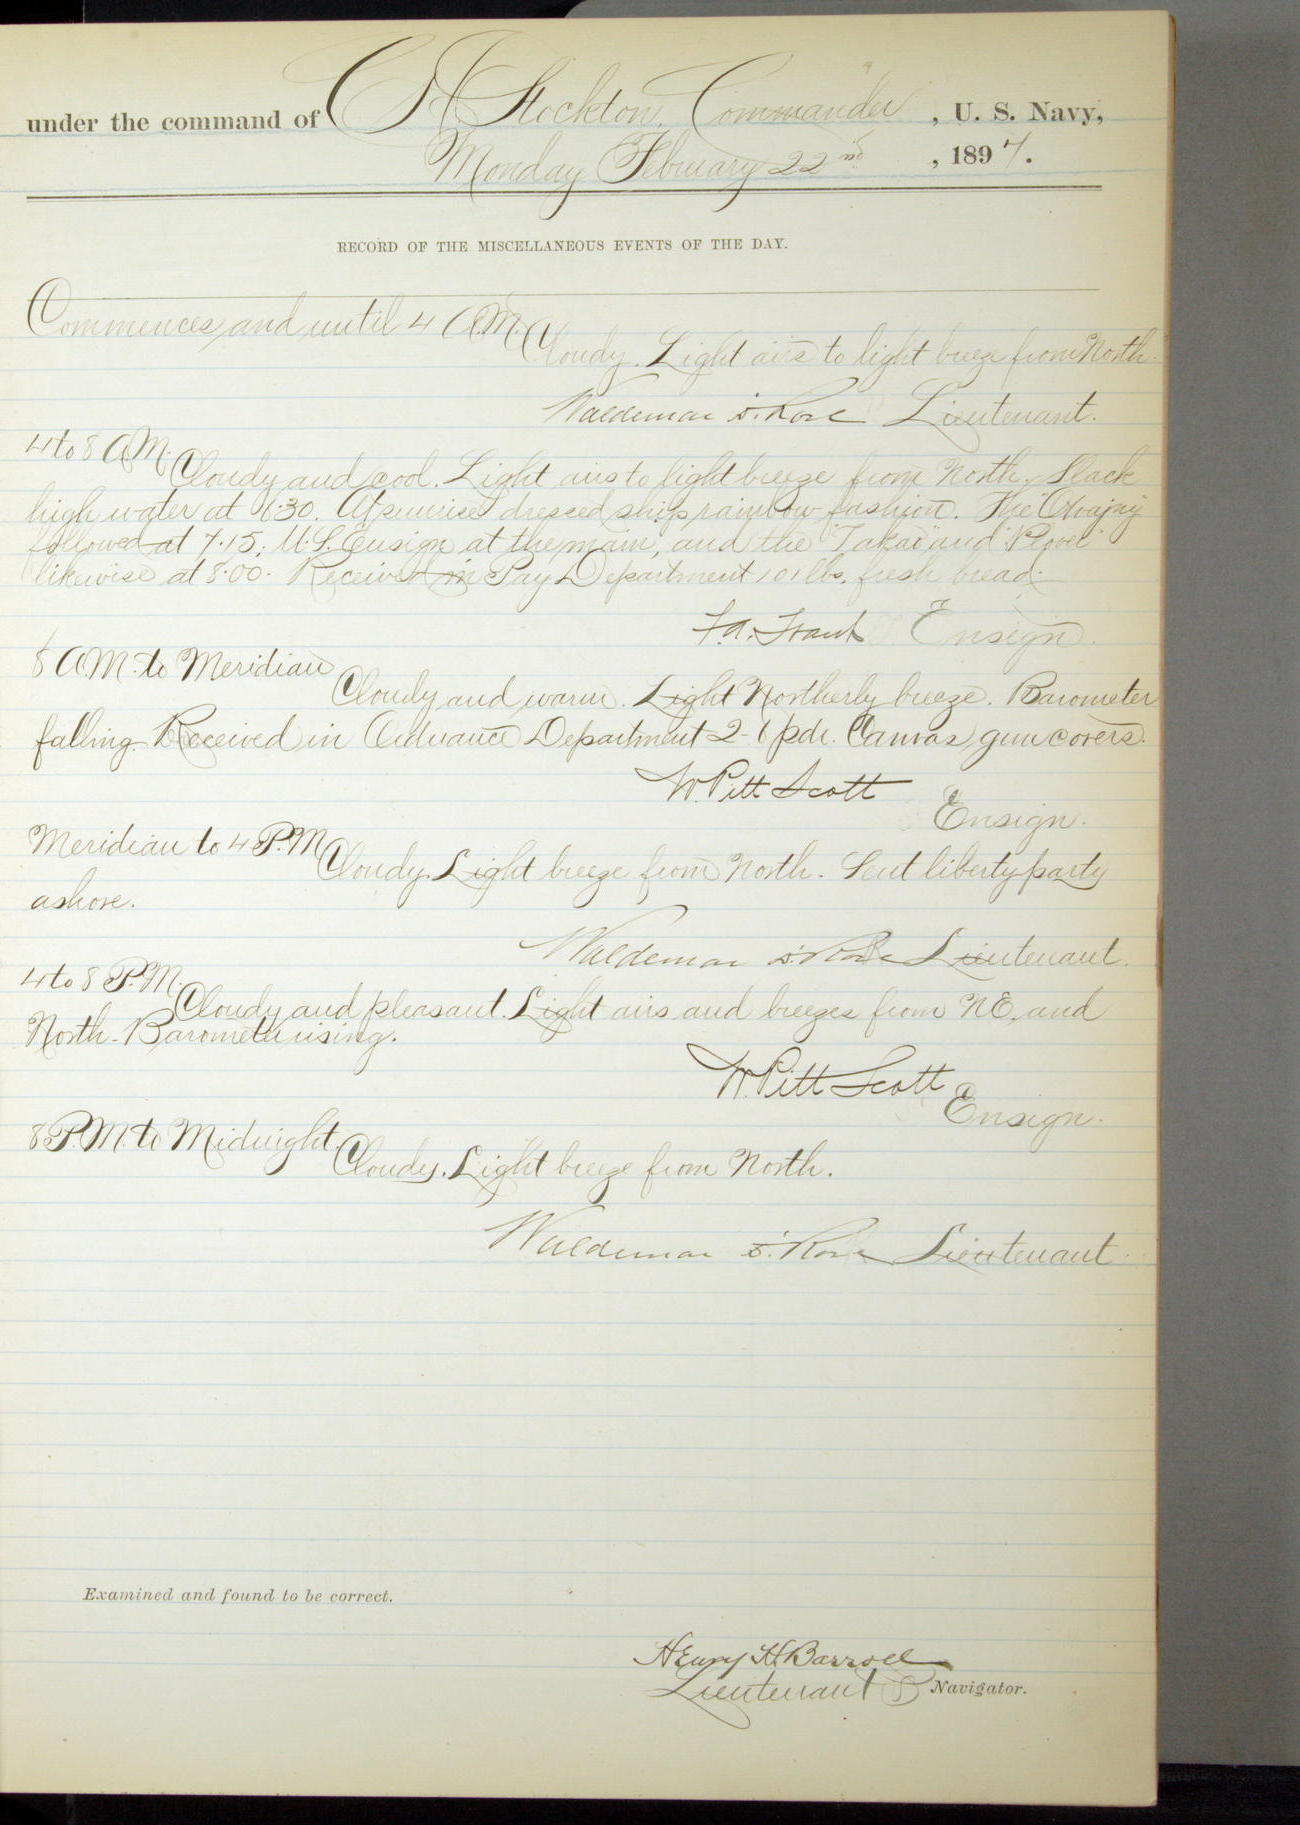 under the command of C H Stockton, Commander, U. S. Navy,
Monday February 22nd, 1897.
RECORD OF THE MISCELLANEOUS EVENTS OF THE DAY.
Commences and until 4 A.M.
Cloudy. Light airs to light breeze from North.
Waldemar D. Rose Lieutenant.
4 to 8 A.M.
Cloudy and cool. Light airs to light breeze from North. Slack
high water at 6:30. At sunrise dressed ship rainbow fashion. The
followed at 7.15; U.S. Ensign at the main, and the "Takao" and "Plover"
likewise at 8.00. Received in Pay Department 101 lbs. fresh bread.
Ensign.
8 A.M. to Meridian
Cloudy and warm. Light Northerly breeze. Barometer
falling. Received in Ordnance Department 2- 6 pdr. Canvas gun covers.
W. Pitt Scott
Ensign.
Meridian to 4 P.M.
Cloudy. Light breeze from North. Sent liberty party
ashore.
Waldemar D. Rose Lieutenant.
4 to 8 P.M.
Cloudy and pleasant. Light airs and breezes from NE. and
North. Barometer rising.
W. Pitt Scott
Ensign.
8 P.M. to Midnight
Cloudy. Light breeze from North.
Waldemar D. Rose Lieutenant
Examined and found to be correct.
Henry H. Barroll
Lieutenant & Navigator.